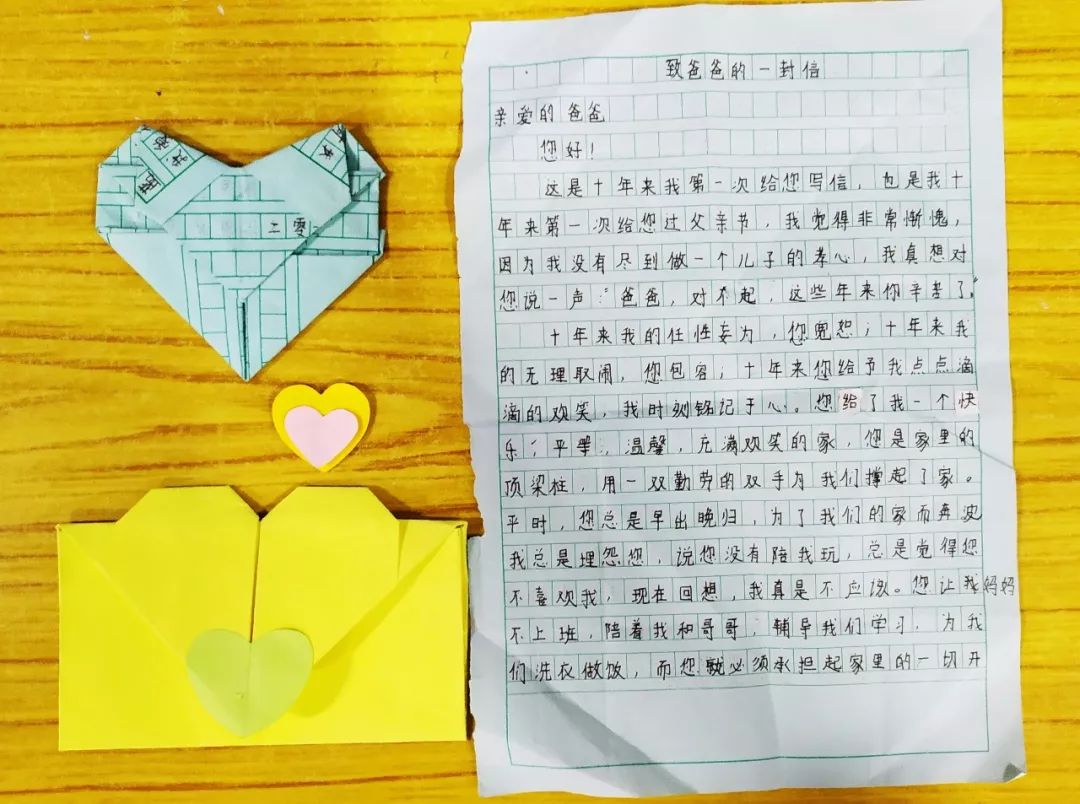 二零一
致爸爸的一封信
亲爱的爸爸
您好！
这是十年来我第一次给您写信，也是我十
年来第一次给您过父亲节，我觉得非常惭愧，
因为我没有尽到做一个儿子的孝心，我真想对
您说一声：爸爸，对不起，这些年来你辛苦了。
十年来我的任性妄为，您宽恕；十年来我
的无理取闹，您包容；十年来您给予我点点滴
滴的欢笑，我时刻铭记于心。您给了我一个快
乐，平等，温馨，充满欢笑的家，您是家里的
顶梁柱，用一双勤劳的双手为我们撑起了家。
平时，您总是早出晚归，为了我们的家而奔波
我总是埋怨您，说您没有陪我玩，总是觉得您
不喜欢我，现在回想，我真是不应该。您让我妈妈
不上班，陪着我和哥哥，辅导我们学习，为我
们洗衣做饭，而您就必须承担起家里的一切开